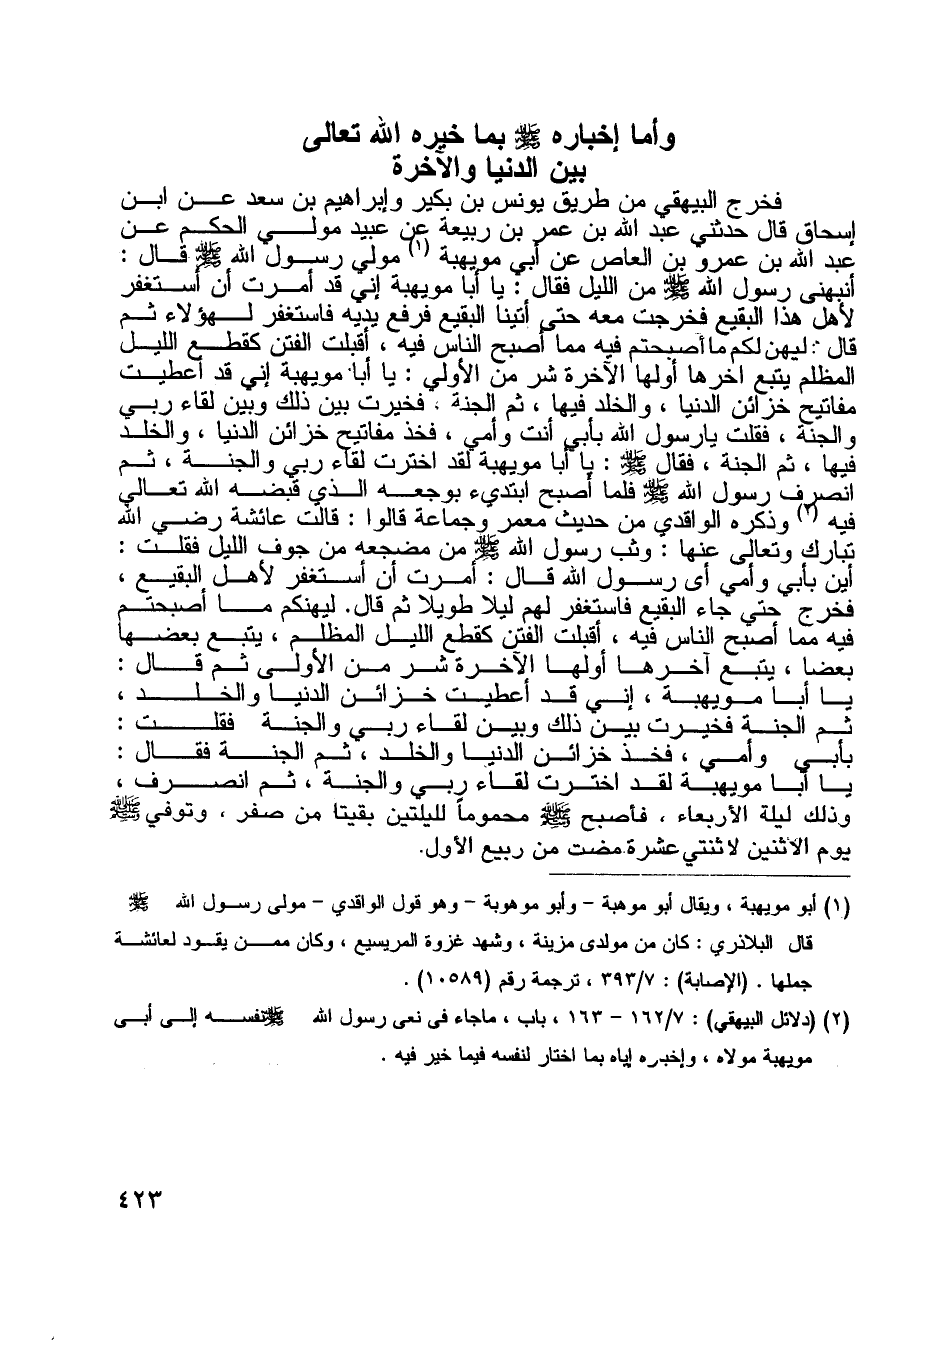 وأما إخباره ﷺ بما خيره الله تعالى
بين الدنيا والآخرة
فخرج البيهقي من طريق يونس بن بكير وإبراهيم بن سعد عـــن ابـن
إسحاق قال حدثني عبد الله بن عمر بن ربيعة عن عبيد مولـــي الحكـم عـن
عبد الله بن عمرو بن العاص عن أبي مويهبة (١) مولي رسـول الله ﷺ قـال :
أنبهنى رسول الله ﷺ من الليل فقال : يا أبا مويهبة إني قد أمـرت أن أسـتغفر
لأهل هذا البقيع فخرجت معه حتى أتينا البقيع فرفع يديه فاستغفر لـهؤلاء ثـم
قال : ليهن لكم ما أصبحتم فيه مما أصبح الناس فيه ، أقبلت الفتن كقطـع الليـل
المظلم يتبع اخرها أولها الآخرة شر من الأولي : يا أبا مويهبة إني قد أعطيـت
مفاتيح خزائن الدنيا ، والخلد فيها ، ثم الجنة ، فخيرت بين ذلك وبين لقاء ربـي
والجنة ، فقلت يارسول الله بأبي أنت وأمي ، فخذ مفاتيح خزائن الدنيا ، والخلـد
فيها ، ثم الجنة ، فقال ﷺ : يا أبا مويهبة لقد اخترت لقاء ربي والجنـــة ، ثـم
انصرف رسول الله ﷺ فلما أصبح ابتديء بوجعـه الـذي قبضـه الله تعـالي
فيه (٢) وذكره الواقدي من حديث معمر وجماعة قالوا : قالت عائشة رضـي الله
تبارك وتعالى عنها : وثب رسول الله ﷺ من مضجعه من جوف الليل فقلـت :
أين بأبي وأمي أى رسـول الله قـال : أمـرت أن أسـتغفر لأهـل البقيـع ،
فخرج حتي جاء البقيع فاستغفر لهم ليلا طويلا ثم قال. ليهنكم مـا أصبحتـم
فيه مما أصبح الناس فيه ، أقبلت الفتن كقطع الليـل المظلـم ، يتبـع بعضـها
بعضا ، يتبـع آخـرهـا أولهـا الآخـرة شـر مـن الأولـى ثـم قـال :
يـا أبـا مـويهبـة ، إنـي قـد أعطيـت خـزائـن الدنيـا والخـلـد ،
ثـم الجنـة فخيـرت بيـن ذلك وبيـن لقـاء ربـي والجنـة فقلـت :
بأبـي وأمـي ، فخـذ خزائـن الدنيـا والخلد ، ثـم الجنـة فقـال :
يـا أبـا مويهبـة لقـد اختـرت لقـاء ربـي والجنـة ، ثـم انصـرف ،
وذلك ليلة الأربعاء ، فأصبح ﷺ محموماً لليلتين بقيتا من صفر ، وتوفيﷺ
يوم الأثنين لاثنتي عشرة مضت من ربيع الأول.
(١) أبو مويهبة ، ويقال أبو موهبة – وأبو موهوبة – وهو قول الواقدي – مولى رسـول الله ﷺ
قال البلاذري : كان من مولدى مزينة ، وشهد غزوة المريسيع ، وكان ممـن يقـود لعائشـة
جملها . (الإصابة) : ٣٩٣/٧ ، ترجمة رقم (١٠٥٨٩) .
(٢) (دلائل البيهقي) : ١٦٢/٧ – ١٦٣ ، باب ، ماجاء فى نعى رسول الله ﷺنفسـه إلـى أبـى
مويهبة مولاه ، وإخبره إياه بما اختار لنفسه فيما خير فيه .
٤٢٣